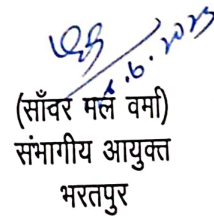 .6.2023
(साँवर मल वर्मा)
संभागीय आयुक्त
भरतपुर